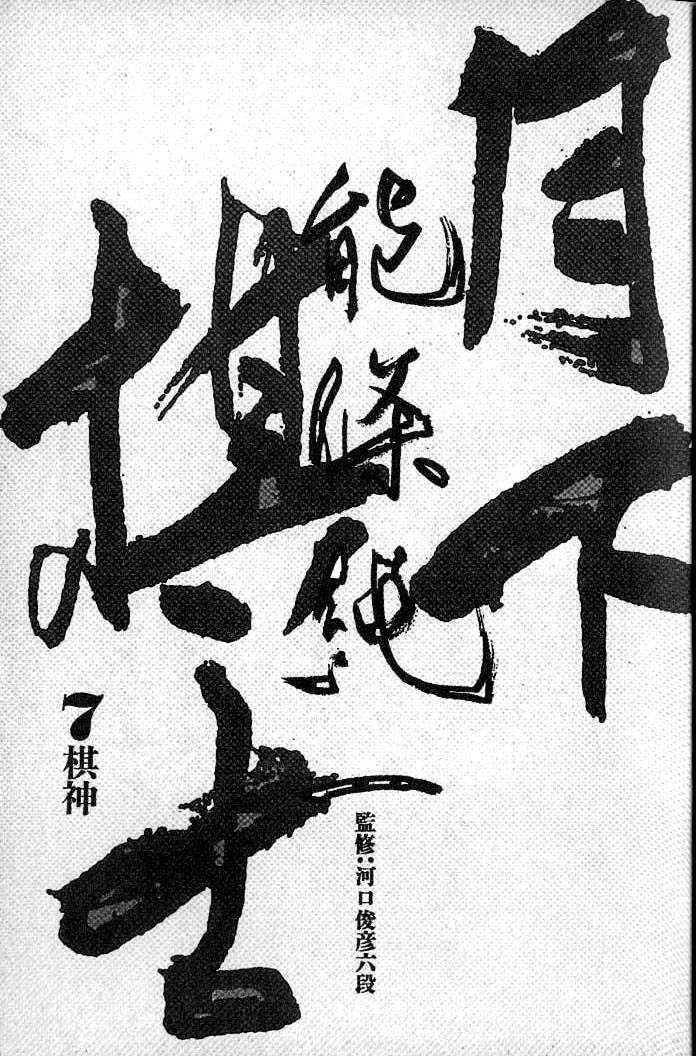 月下
棋士
能條純一
7 棋神
監修:河口俊彦六段